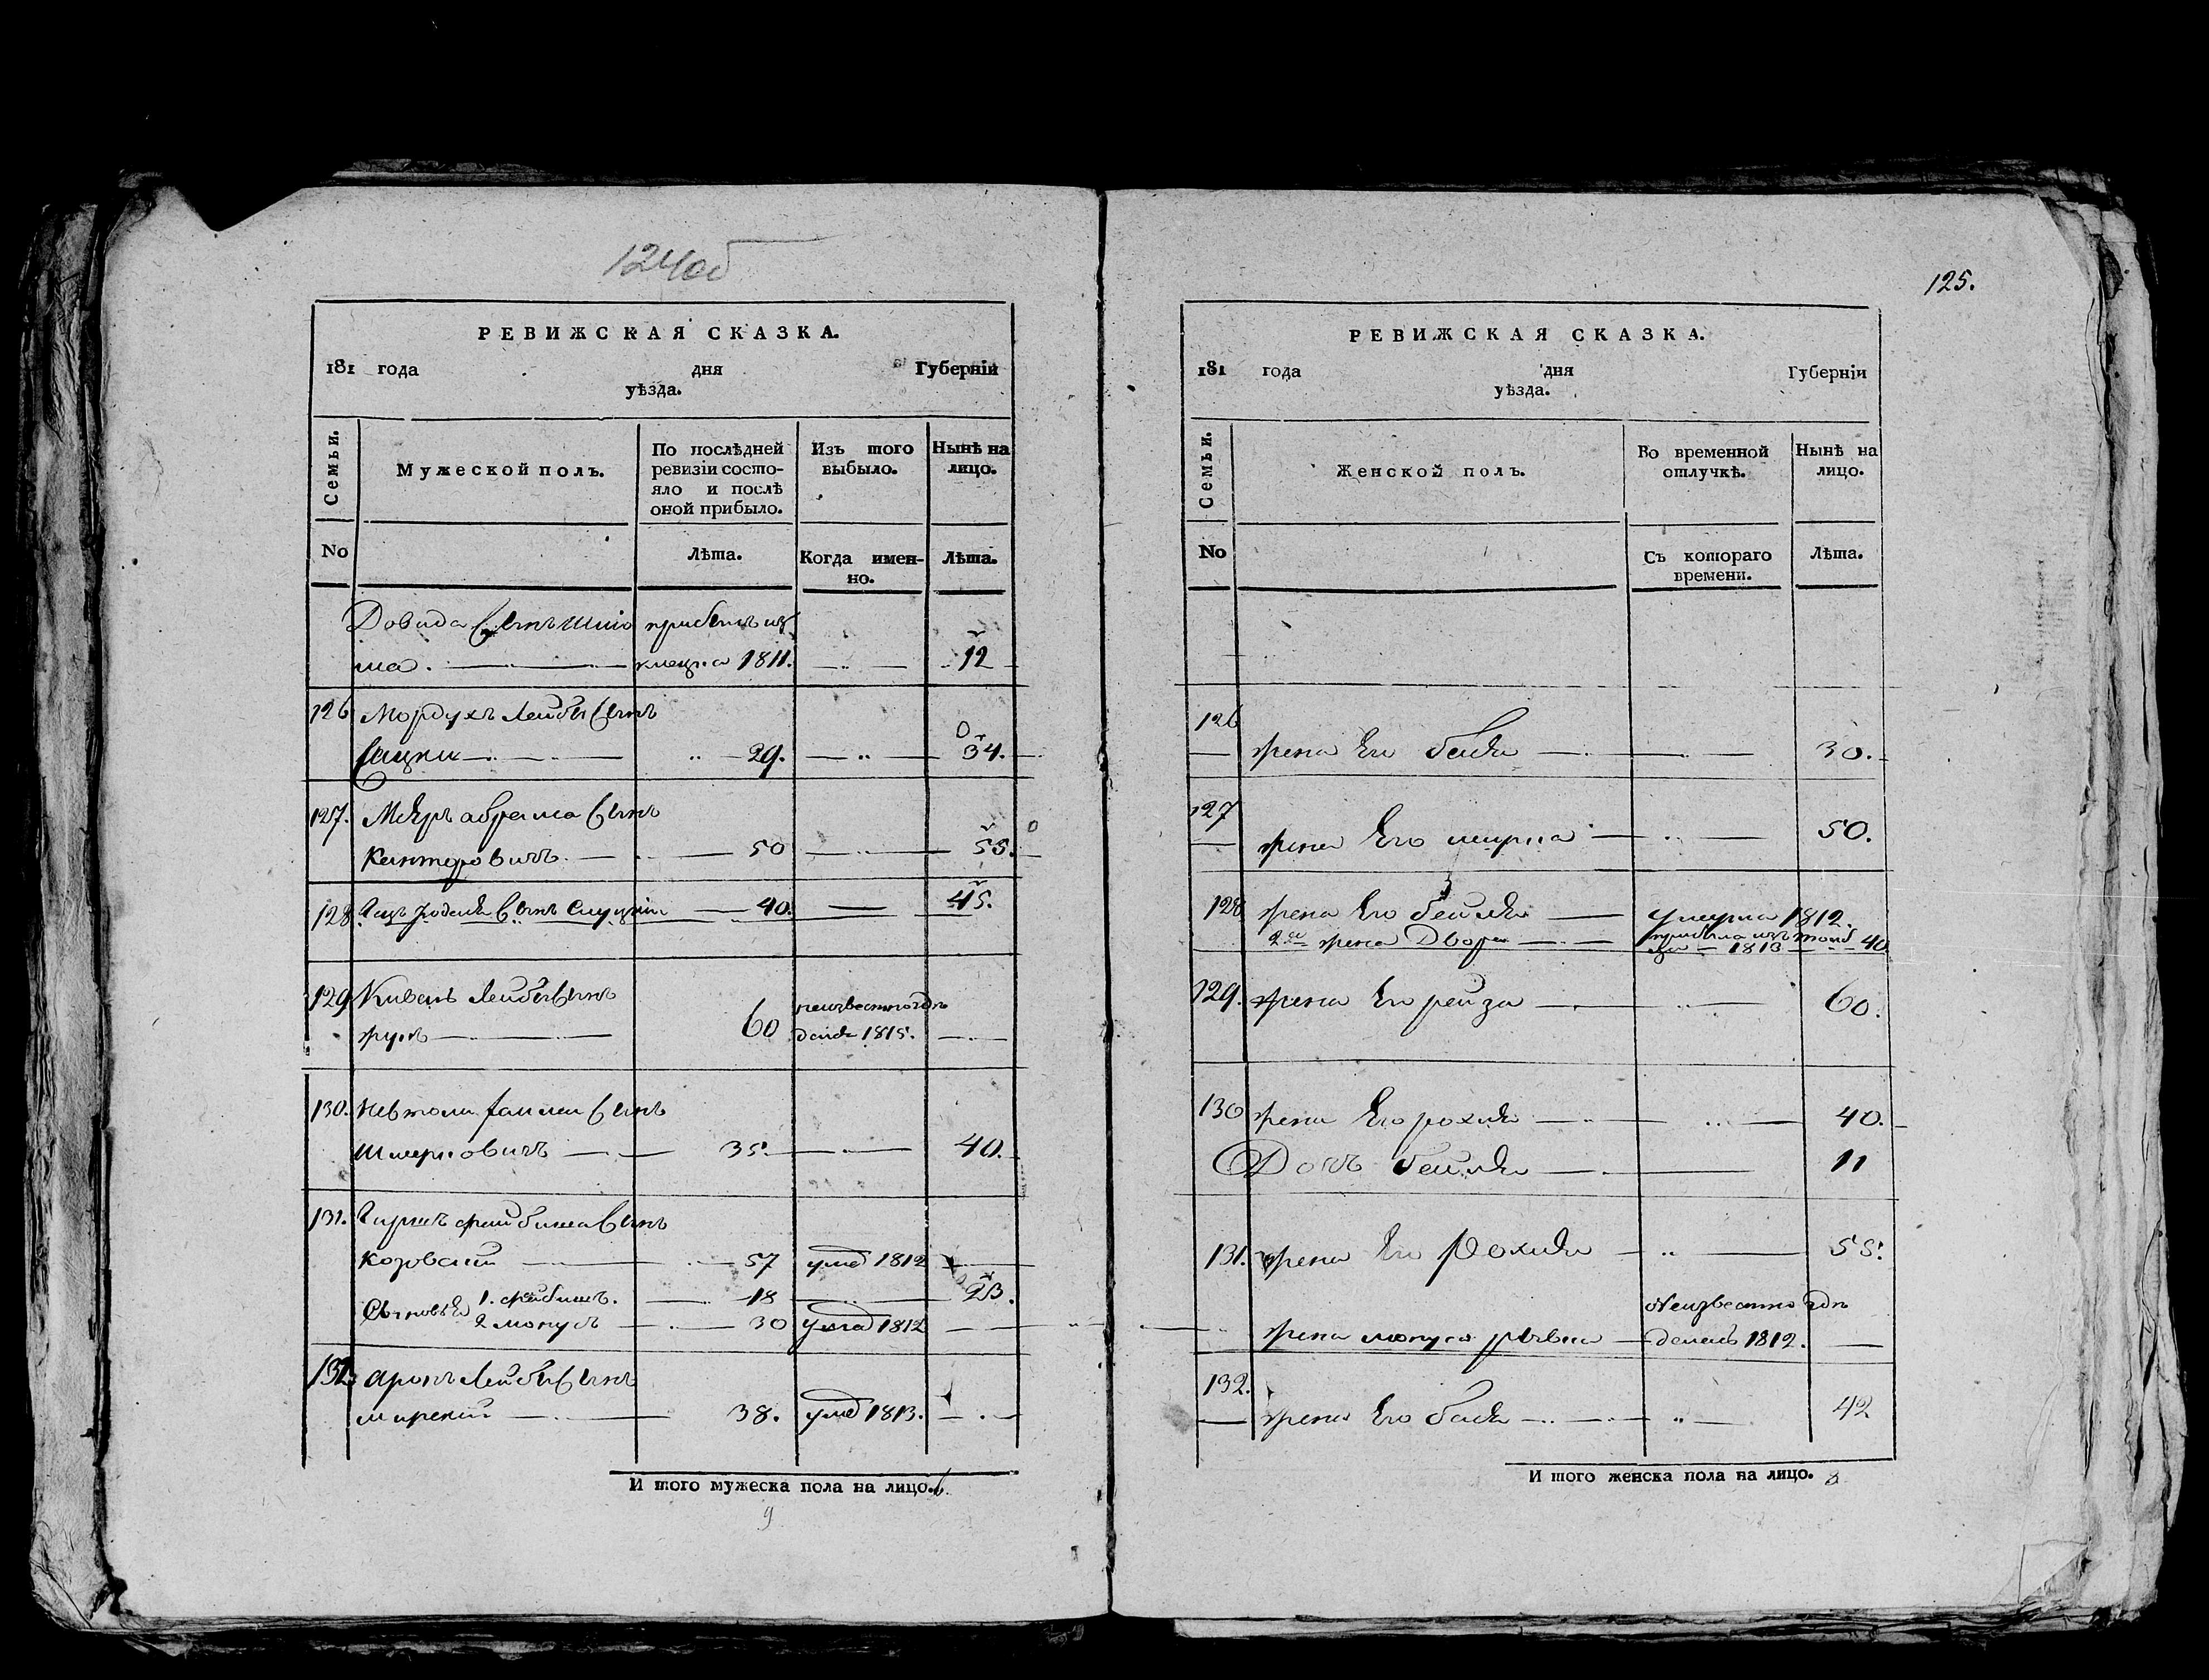 124об
РЕВИЖСКАЯ СКАЗКА.
181 года дня Губерніи
уѣзда.
Семьи.
Мужеской полъ.
По послѣдней ревизіи состо-
яло и послѣ
оной прибыло.
Изъ того
выбыло.
Нынѣ на
лицо.
No
Лѣта.
Когда имен-
но.
Лѣта.
Довида сынъ Шліо прибылъ изъ
ма. клецка 1811. 12
126 Мордухъ Лейбы сынъ
29. 34.
127. Меѣръ абрама сынъ
Канторовичъ. 50 55.
128. сынъ Слуцкій 40. 45.
129 Кивель Лейбы сынъ неизвестно гдѣ
60 1815.
130. Невтоли сынъ
Шмерковичъ 35. 40.
131. Гиршъ файбиша сынъ
57 умре 1812
Сыновья 1. файбишъ. 18 23.
2 монусъ 30 умре 1812
132. аронъ Лейбы сынъ
мирский 38. умре 1813.
И того мужеска пола на лицо. 6
9
125.
РЕВИЖСКАЯ СКАЗКА.
181 года дня Губерніи
уѣзда.
Семьи.
Женской полъ.
Во временной
отлучкѣ.
Нынѣ на
лицо.
No
Съ котораго
времени.
Лѣта.
126
жена Его 30.
127
жена Его мирка 50.
128 жена Его бейля умерла 1812.
2я жена Двора прибыла изъ
1813 40
129. жена Его рейза 60.
130 жена Его рохля 40.
Дочь бейля 11
131. жена Его Рохля 55.
Неизвестно гдѣ
жена монуса рывка 1812.
132.
жена Его бася 42
И того женска пола на лицо. 8